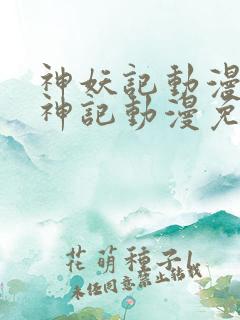 神妖記動漫
神記動漫免
花萌種子l
未任同意禁止转载